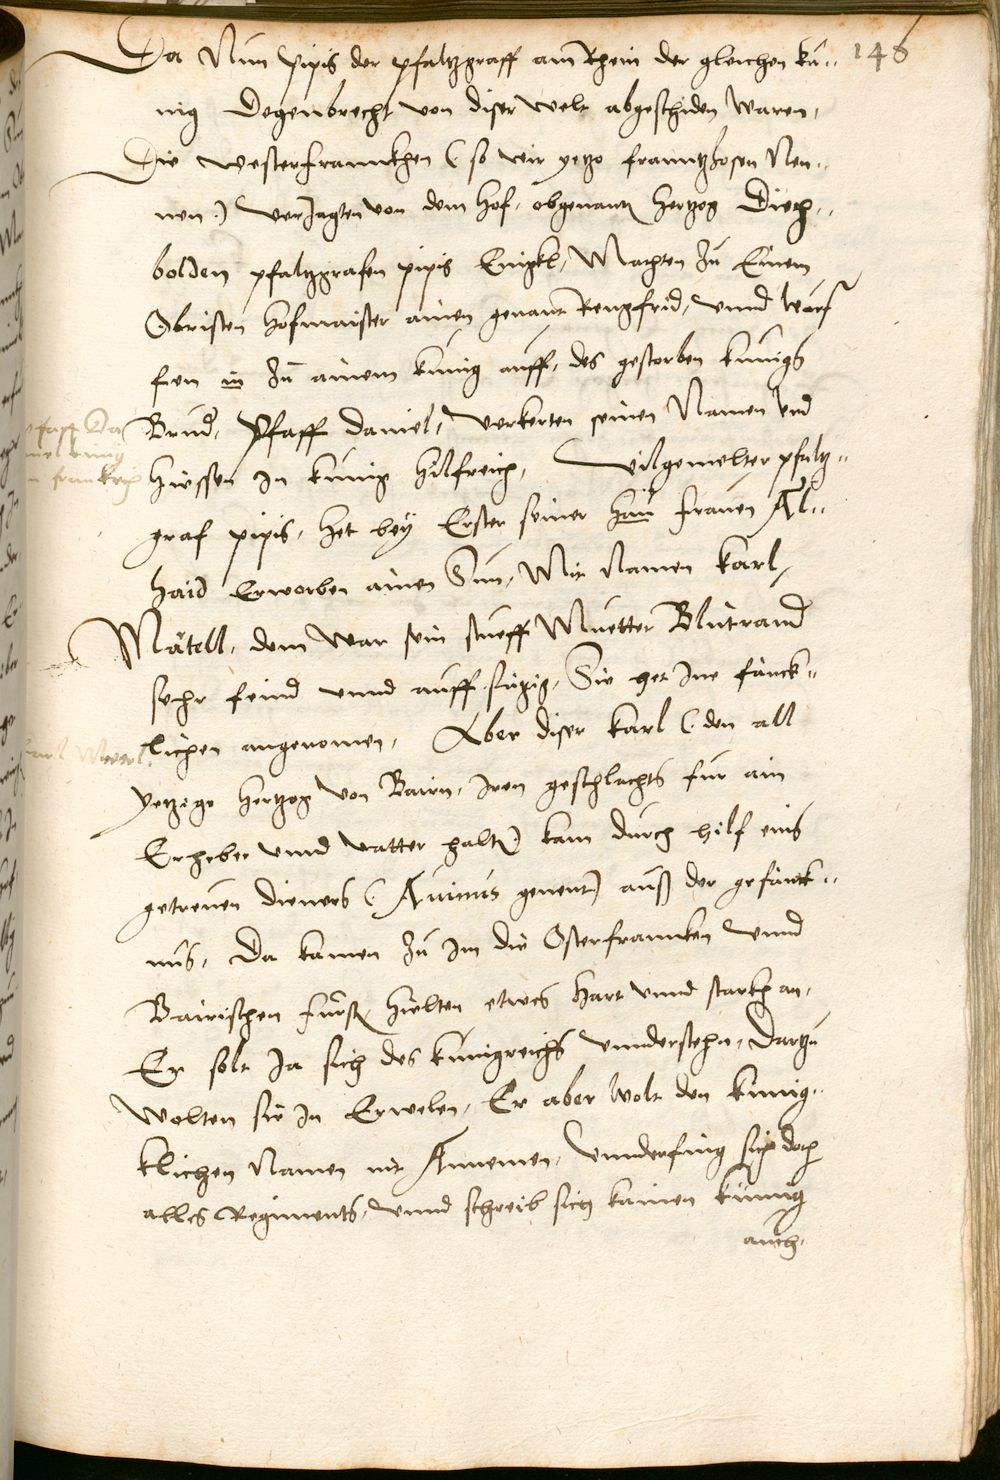 146
Da Nun Pipis der pfaltzgraff am Rhein der gleichen kü¬
nig Degenbrecht von diser welt abgeschiden Waren,
Die Westerfrannkhen (so wir yetzo franntzhosen Nen¬
nen.) verJagten von dem Hof, obgenantn Hertzog Diech¬
bolden pfaltzgrafen pipis Enigkl, Machten Zu Einem
Obristen Hofmaister ainen genant Rengfrid, vnnd wurf
fen in Zu ainem kunig auff, des gestorben kunigs
Brud, Pfaff Daniel, verkerten seinen Namen vnd
hiessen In kunig Hilfreich, Vilgemelter pfaltz¬
graf pipis, Het bey Erster seiner Hau frauen Al¬
haid Erworben ainen Sun, Mit Namen Karl,
Mätell, dem War sein stueff Muetter Blutrand
sehr feind vnnd auff sätzig, Sie het Ine fänck¬
lichen angenomen, Aber diser Karl (den all
yetzige Hertzog von Bairn, Iren geschlachts für ain
Erheber vnnd vatter halten) kam durch hilf eins
getreuen Dieners (Auinus genent) auß der gefänck¬
nus, Da kamen Zu Im die Osterfrannken vnnd
Bairischen fürstn hielten etwas Hart vnnd starkh an,
Er solt Ja sich des kunigreichs vnnderstehn, Dartzu
Wolten sie In Erwelen, Er aber Wolt den kunig¬
klichen Namen nit Annemen, vnnderfieng sich doch
alles Regiments, vnnd schreib sich kainen künig
auch,
pfaff Da
niel kunig
in frankrich
karl